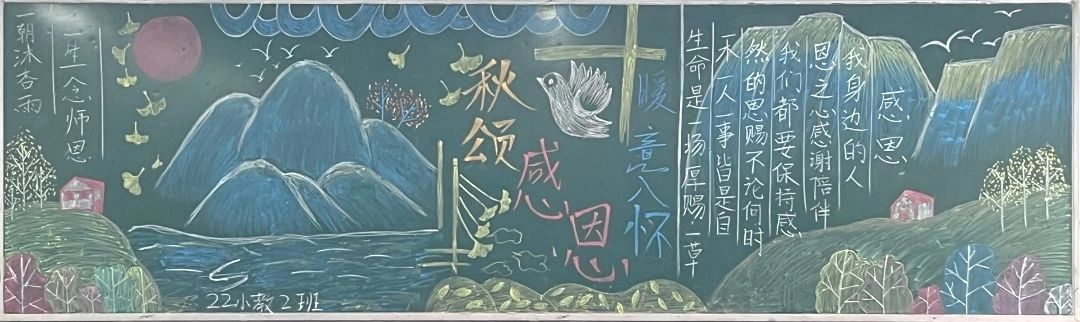 一朝沐杏雨
一生念师恩
22小教2班
秋颂
感恩
暖意入怀
感恩
生命是一场厚赐一草
一木一人一事皆是自
然的恩赐不论何时
我们都要保持感
恩之心感谢陪伴
我身边的人